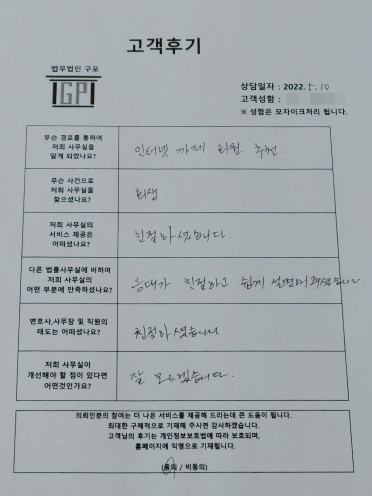 고객후기
법무법인 구포
GP
상담일자 : 2022. 5. 10
고객성함 :
※ 성함은 모자이크처리 됩니다.
무슨 경로를 통하여
저희 사무실을
알게 되었나요?
인터넷 까페 회원 추천.
무슨 사건으로
저희 사무실을
찾으셨나요?
회생.
저희 사무실의
서비스 제공은
어떠셨나요?
친절하셨습니다.
다른 법률사무실에 비하여
저희 사무실의
어떤 부분에 만족하셨나요?
응대가 친절하고 쉽게 설명해주셨습니다
변호사,사무장 및 직원의
태도는 어떠셨나요?
친절하셨습니다.
저희 사무실이
개선해야 할 점이 있다면
어떤것인가요?
잘 모르겠습니다.
의뢰인분의 참여는 더 나은 서비스를 제공해 드리는데 큰 도움이 됩니다.
최대한 구체적으로 기재해 주시면 감사하겠습니다.
고객님의 후기는 개인정보보호법에 따라 보호되며,
홈페이지에 익명으로 기재됩니다.
(동의 / 비동의)